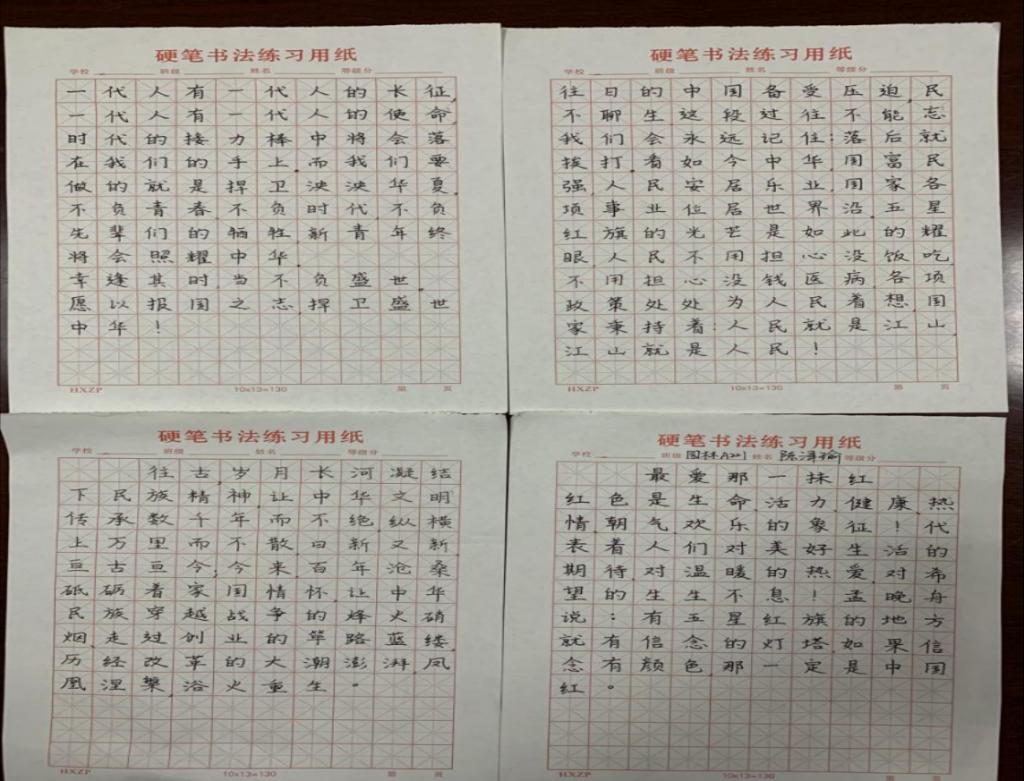 硬笔书法练习用纸
学校 班级 姓名 等级分
一代人有一代人的长征,
一代人有一代人的使命,
时代的接力棒中将会落
在我们的手上,而我们要
做的就是捍卫泱泱华夏,
不负青春,不负时代,不负
先辈们的牺牲,新青年终
将会照耀中华.
幸逢其时,当不负盛世,
愿以报国之志,捍卫盛世
中华!
HXZP 10x13=130 第 页
硬笔书法练习用纸
学校 班级 姓名 等级分
往日的中国备受压迫,民
不聊生这段过往不能忘
我们会永远记住:落后就
挨打,看如今中华,国富民
强,人民安居乐业,国家各
项事业位居世界沿,五星
红旗的光芒是如此的耀
眼,人民不用担心没饭吃,
不用担心没钱医病,各项
政策处处为人民着想,国
家秉持着:人民就是江山,
江山就是人民!
HXZP 10x13=130 第 页
硬笔书法练习用纸
学校 班级 姓名 等级分
往古,岁月长河凝结
下民族精神,让中华文明
传承数千年而不绝,纵横
上万里而不散,日新又新,
亘古亘今;今来,百年沧桑
砥砺着家国情怀让中华
民族穿越战争的烽火硝
烟,走过创业的筚路蓝缕,
历经改革的大潮澎湃,凤
凰涅槃,浴火重生。
HXZP 10x13=130 第 页
硬笔书法练习用纸
学校 班级 园林A221 姓名 陈泽瑜 等级分
最爱那一抹红
红色是生命,活力,健康,热
情,朝气,欢乐的象征!代
表着人们对美好生活的
期待,对温暖的热爱,对希
望的生生不息!孟晚舟
说:有五星红旗的地方
就有信念的灯塔,如果信
念有颜色,那一定是中国
红。
HXZP 10x13=130 第 页